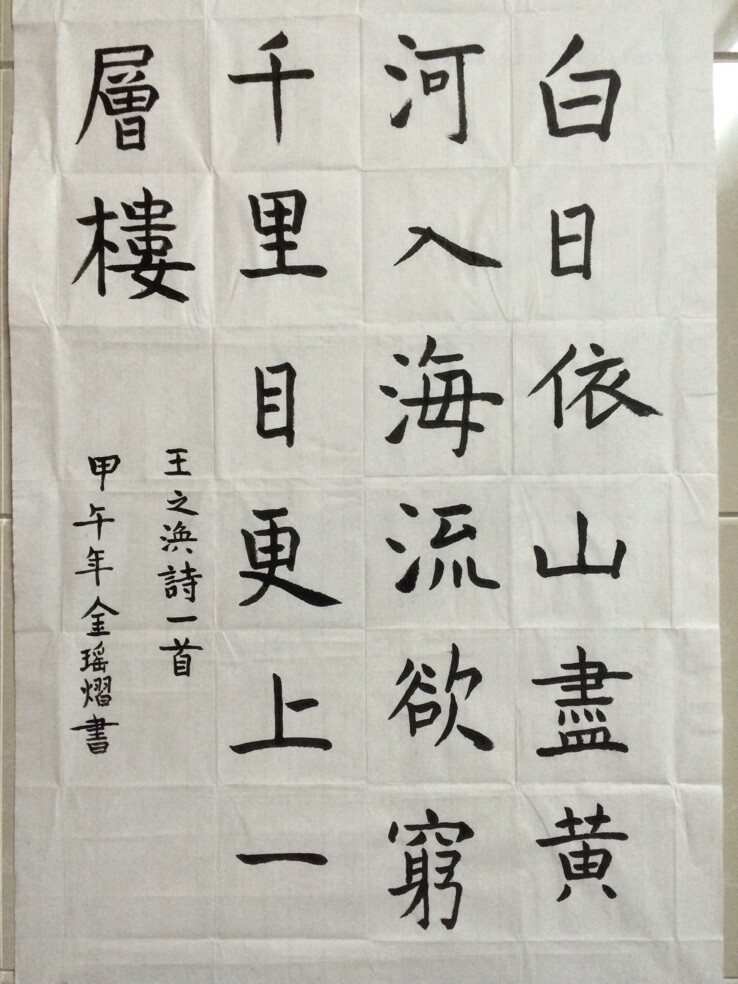 白日依山盡黄
河入海流欲窮
千里目更上一
層樓
王之渙詩一首
甲午年金瑶熠書